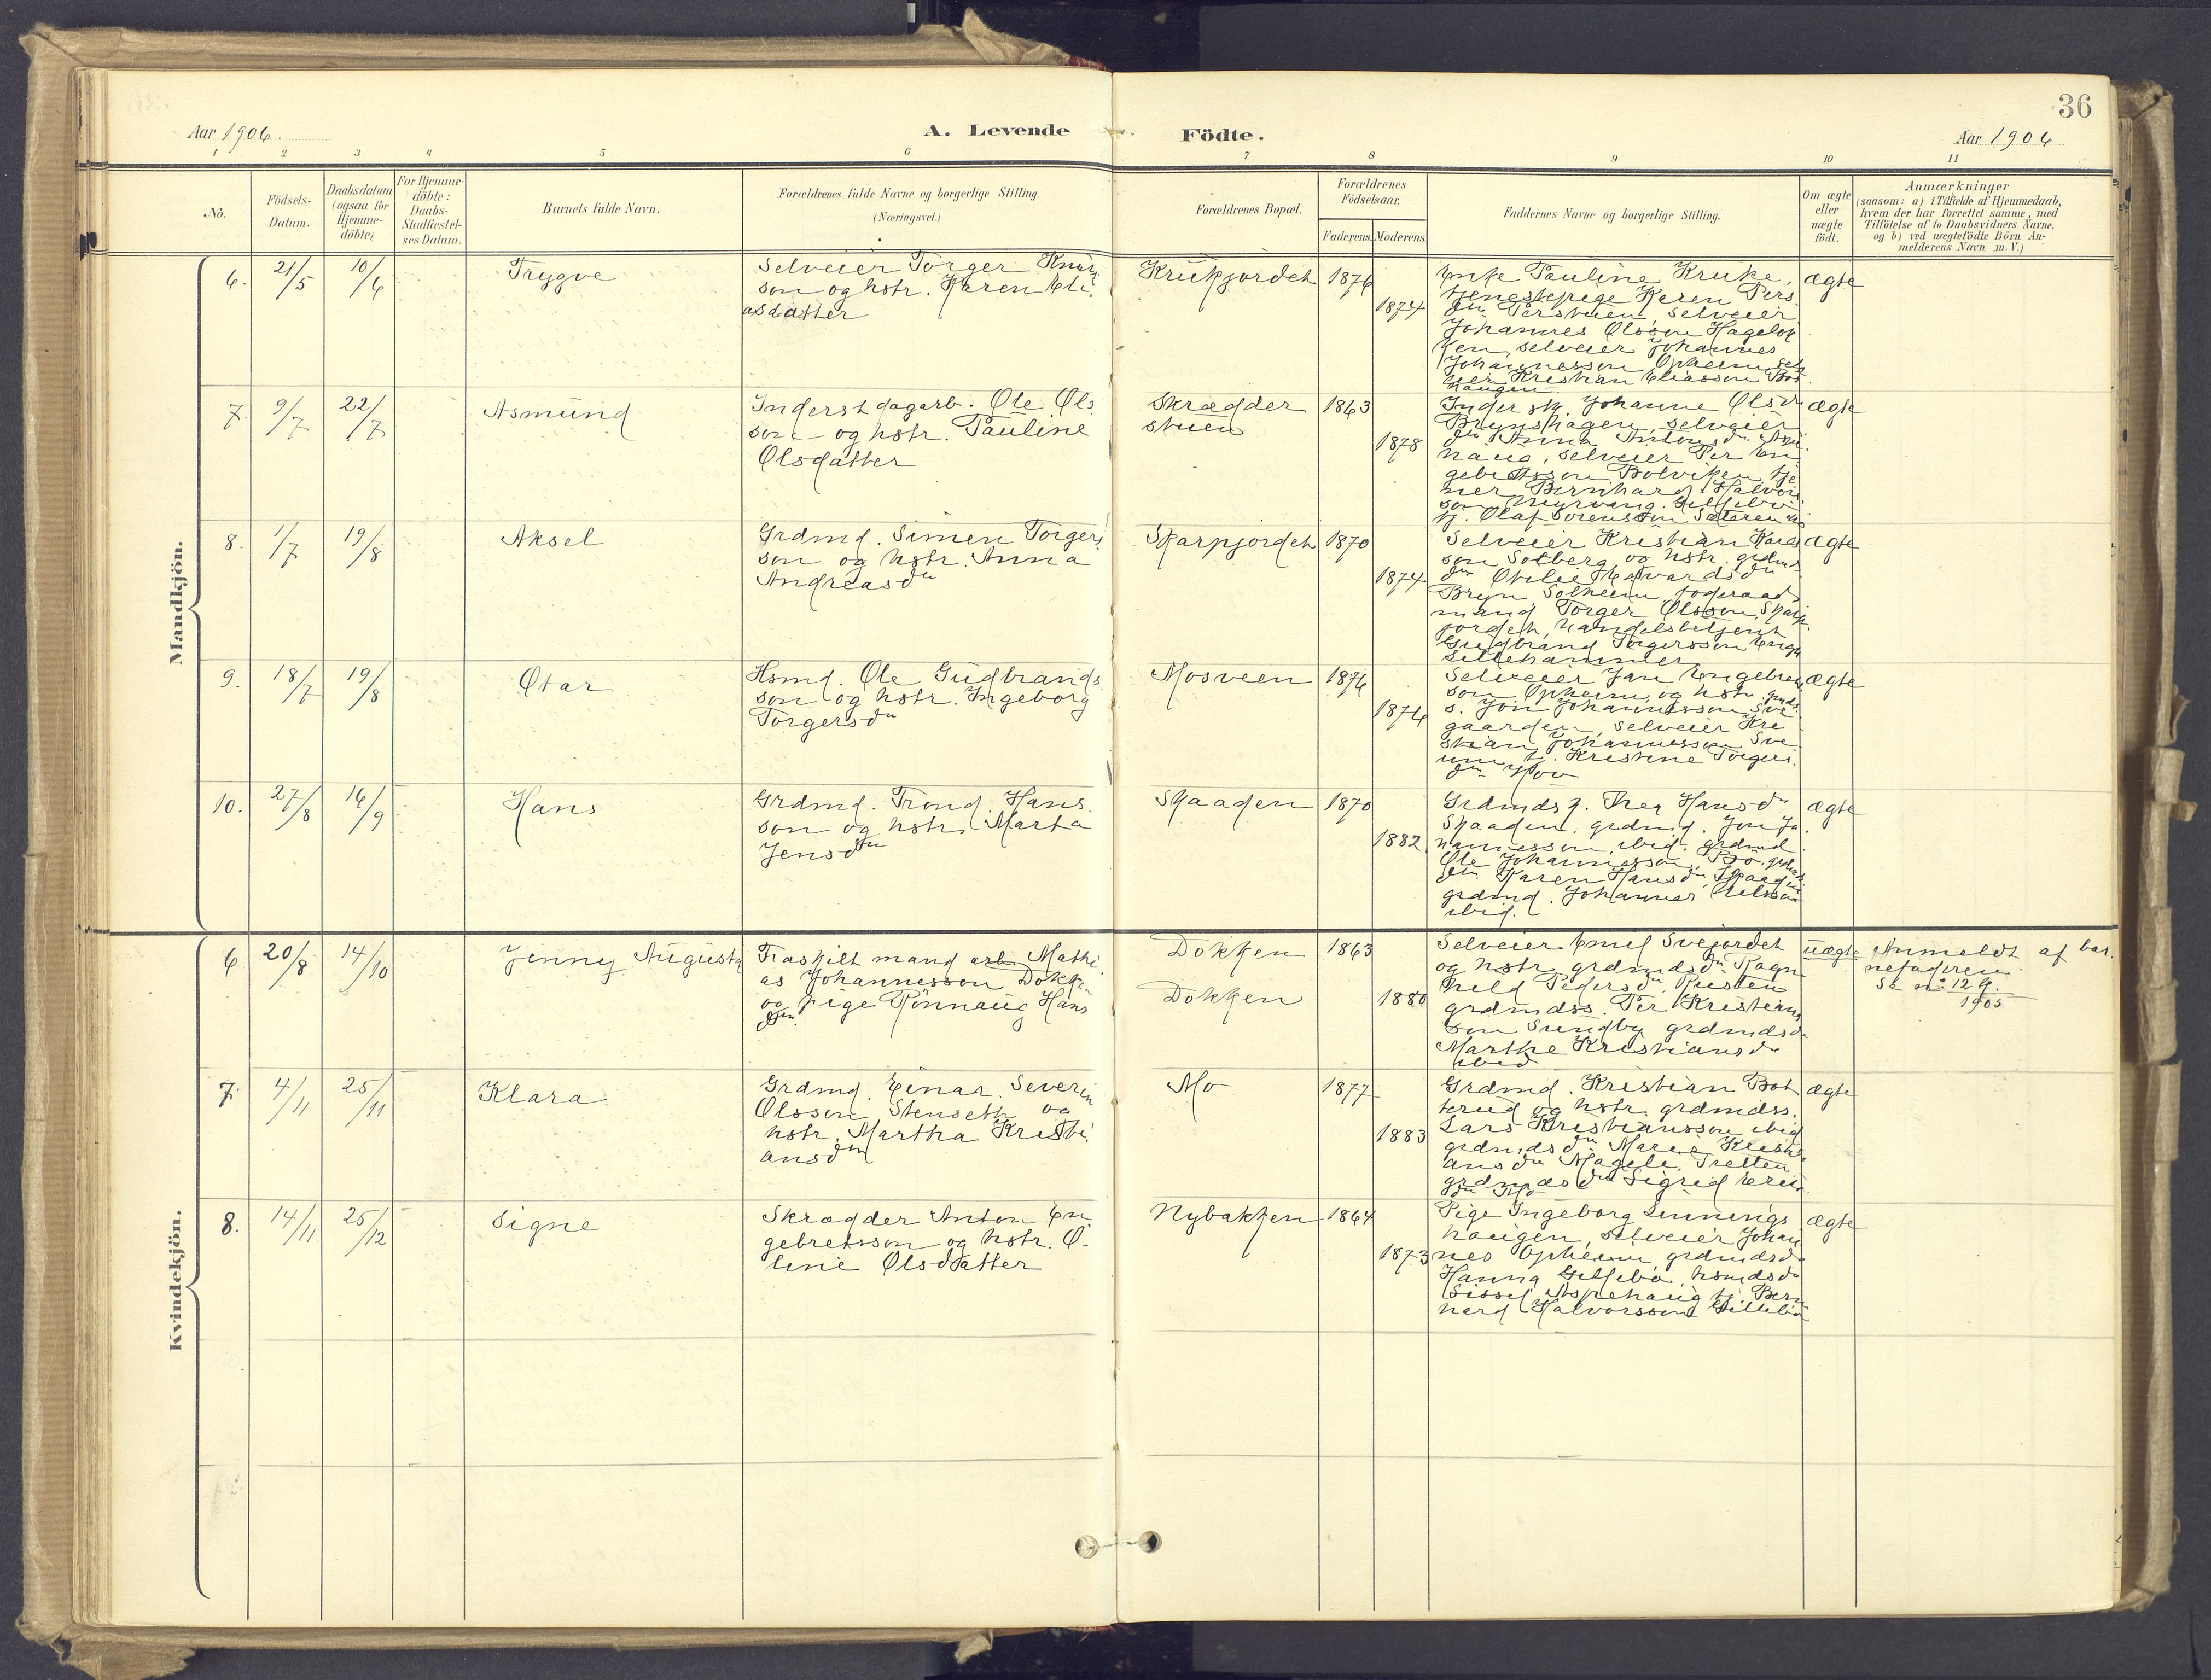 36
Aar 1906.
A. Levende
Födte.
Aar 1906
1 2 3 4 5 6 7 8 9 10 11
No.
Födsels-
Datum.
Daabsdatum
(ogsaa for
Hjemme-
döbte)
For Hjemme-
döbte:
Daabs-
Stadfæstel-
ses Datum.
Barnets fulde Navn.
Forældrenes fulde Navne og borgerlige Stilling.
(Næringsvei.)
Forældrenes Bopæl.
Forældrenes
Födselsaar.
Faderens.
Moderens.
Faddernes Navne og borgerlige Stilling.
Om ægte
eller
uægte
födt.
Anmærkninger
(saasom: a) i Tilfælde af Hjemmedaab,
hvem der har forrettet samme, med
Tilföielse af to Daabsvidners Navne,
og b) ved uægtefödte Börn An-
melderens Navn m. V.)
Mandkjön.
6. 21/5 10/6
Trygve
Selveier Torger Knut
son og hstr. Karen Eli
asdatter
Krukjordet
1876
1874
Enke Pauline Kruke,
tjenestepige Karen Pers
dtr Persveen, selveier
Johannes Olsson Hageløk
ken, selveier Johannes
Johannesson Opheim, selv
eier Kristian Eliasson
haugen
ægte
7. 9/7 22/7
Asmund
Inderst dagarb. Ole Ols
son og hstr. Pauline
Olsdatter
Skrædder
stuen
1863
1878
Inderst. Johanne Olsdr
Brynshagen, selveier
dtr Anna Antonsdtr
haug, selveier Per En
gebretsson Bolviken, tje
ner Bernhard Halvor
son
tj. Olaf Sorensson
ægte
8. 1/7 19/8
Aksel
Grdmd. Simen Torgers
son og hstr. Anna
Andreasdtr
Skarpjordet
1870
1874
Selveier Kristian Hans
son Solberg og hstr. grdmds
dtr Otilie
Bryn Solheim, foderaads
mand Torger Olsson Skarp
jordet, handelsbetjent
Gudbrand Torgersson Enge
Lillehammer
ægte
9. 18/7 19/8
Otar
Hsmd. Ole Gudbrands
son og hstr. Ingeborg
Torgersdtr
Mosveen
1876
1876
Selveier Jan Engebret
son Opheim og hstr. grdmd
s. Jon Johannesson Sve
gaarden, selveier Kri
stian Johannesson Sve
um tj. Kristine Torgers
dtr Hov
ægte
10. 27/8 16/9
Hans
Grdmd. Trond Hans
son og hstr. Marta
Jensdtr
Skaaden
1870
1882
Grdmdsk. Thea Hansdtr
Skaaden, grdmd. Jon Jo
hannesson ibid. grdmd
Ole Johannesson Bø, grdmds
dtr Karen Hansdtr Skaaden
grdmd. Johannes Nilsson
ibid.
ægte
Kvindekjön.
6 20/8 14/10
Jenny Augusta
Fraskilt mand arb. Mathi
as Johannesson Dokken
og pige Rønnaug Hans
dtr.
Dokken
Dokken
1863
1880
Selveier Emil Svejordet
og hstr. grdmdsdtr Ragn
hild Pedersdtr Rusten
grdmdss. Per Kristians
son Sundby grdmdsdr
Marthe Kristiansdr
ibid
uægte
Anmeldt af bar
nefaderen
Se no 129.
1905
7. 4/11 25/11
Klara
Grdmd. Einar Severin
Olsson Stenseth og
hstr. Martha Kristi
ansdtr
Mo
1877
1883
Grdmd. Kristian Bot
terud og hstr. grdmdss.
Lars Kristiansson ibid
grdmdsdtr Marie Kristi
ansdtr Magele, Tretten
grdmdsdtr Sigrid
dtr Mo
ægte
8. 14/11 25/12
Signe
Skrædder Anton En
gebretsson og hstr. O
line Olsdatter
Nybakken
1864
1873
Pige Ingeborg Linnerigs
haugen, selveier Johan
nes Opheim, grdmdsdr
Hanna Gillebo, hsmdsdtr
Sissel Asphaug tj. Bern
hard Halvorsson Gillebo
ægte